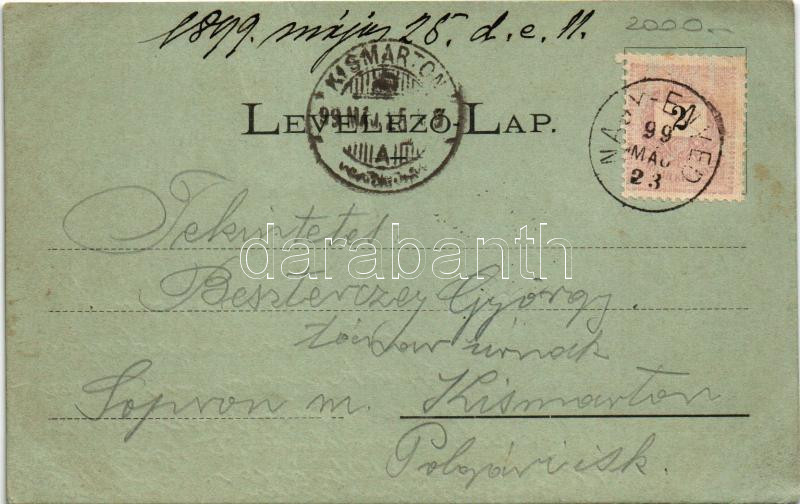 1899. május 25. d. e. 11.
2000.-
KISMARTON
99 MÁJ 25
A
LEVELEZŐ-LAP.
2
NAGY-ENYED
99
MÁJ
23
Tekintetes
darabanth
Beszterczey György
tanár úrnak
Sopron m. Kismarton
Polgári isk.